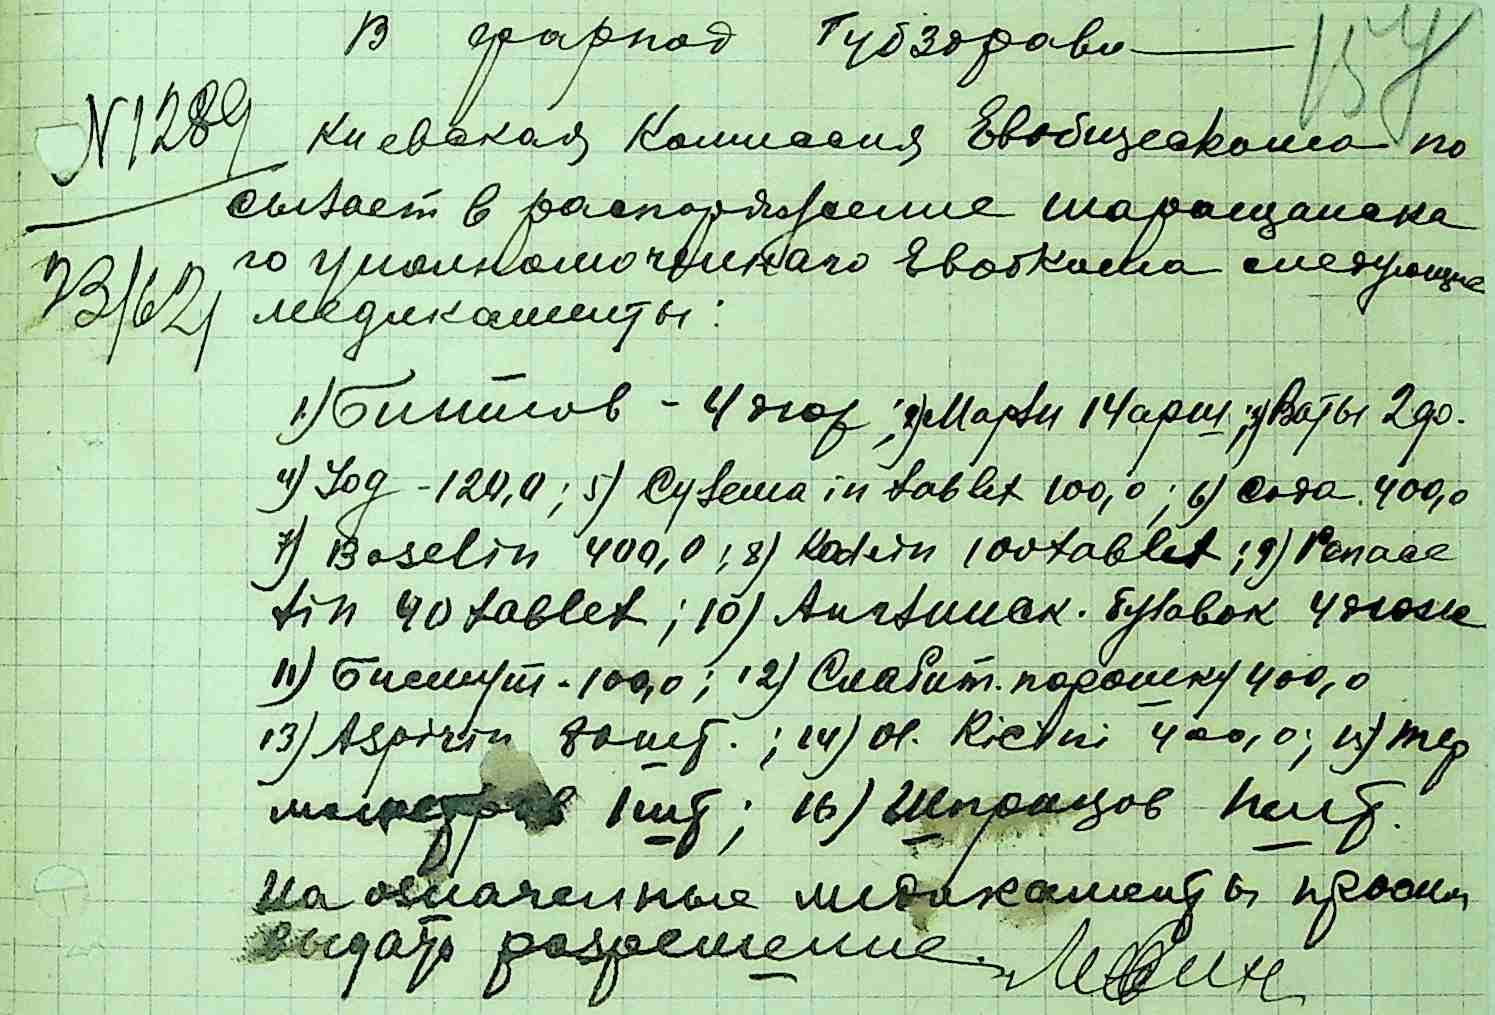 В фарпод Губздрава
157
№1289
Киевская Комиссия Евобщескома по
сылает в распоряжение таращанска
го уполномоченнаго Евобкома следующие
медикаменты:
1) Бинтов - 4 дюж; 2) Марли 14 арш; 3) Ваты 2 ф.
4) Jod - 120,0; 5) Сулема in tablet 100,0; 6) Сода 400,0
7) Vaselin 400,0; 8) Kodein 100 tablet; 9) Fenace
tin 40 tablet; 10) Английск. булавок 4 дюж
11) Бисмут - 100,0; 12) Слабит. порошку 400,0
13) Aspirin 80 шт.; 14) Ol. Ricini 400,0; 15) тер
мометров 1 шт; 16) Шприцов 1 шт.
На означенные медикаменты просим
выдать разрешение.